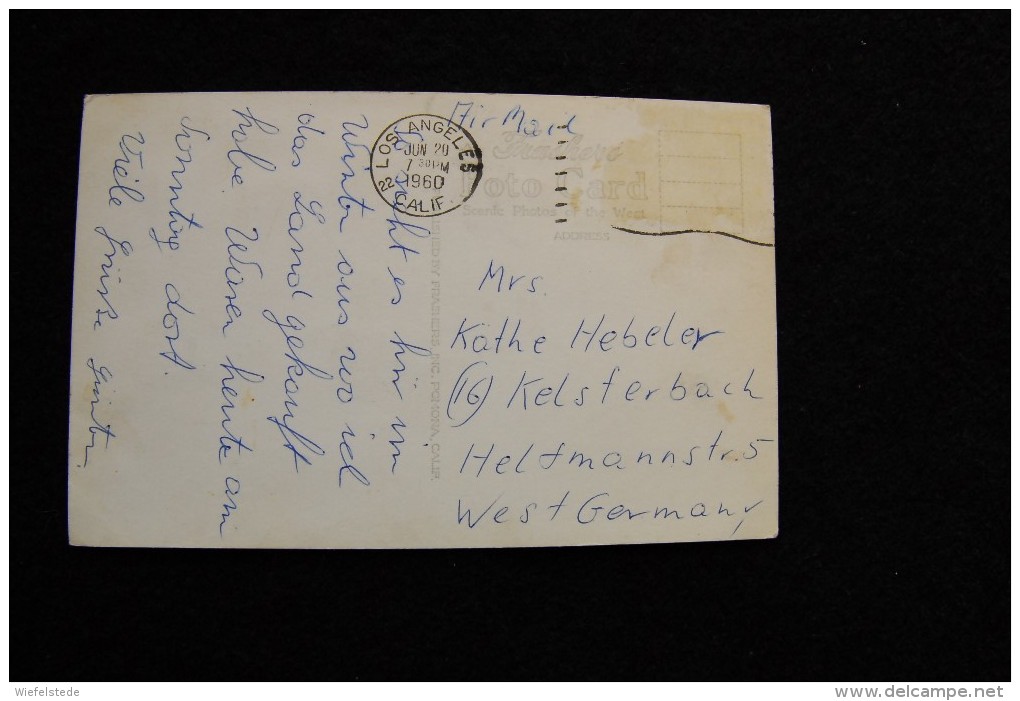 Air Mail
LOS ANGELES
JUN 20
7 30 PM
1960
22 CALIF.
Frashers
Foto Card
Scenic Photos of the West
ADDRESS
PUBLISHED BY FRASHERS INC., POMONA, CALIF.
So sieht es hir im
Winter aus wo ich
das Land gekauft
habe. Waren heute am
Sonntag dort.
Viele Grüsse Günter.
Mrs.
Käthe Hebeler
(16) Kelsterbach
Helfmannstr. 5
West Germany
Wiefelstede
www.delcampe.net